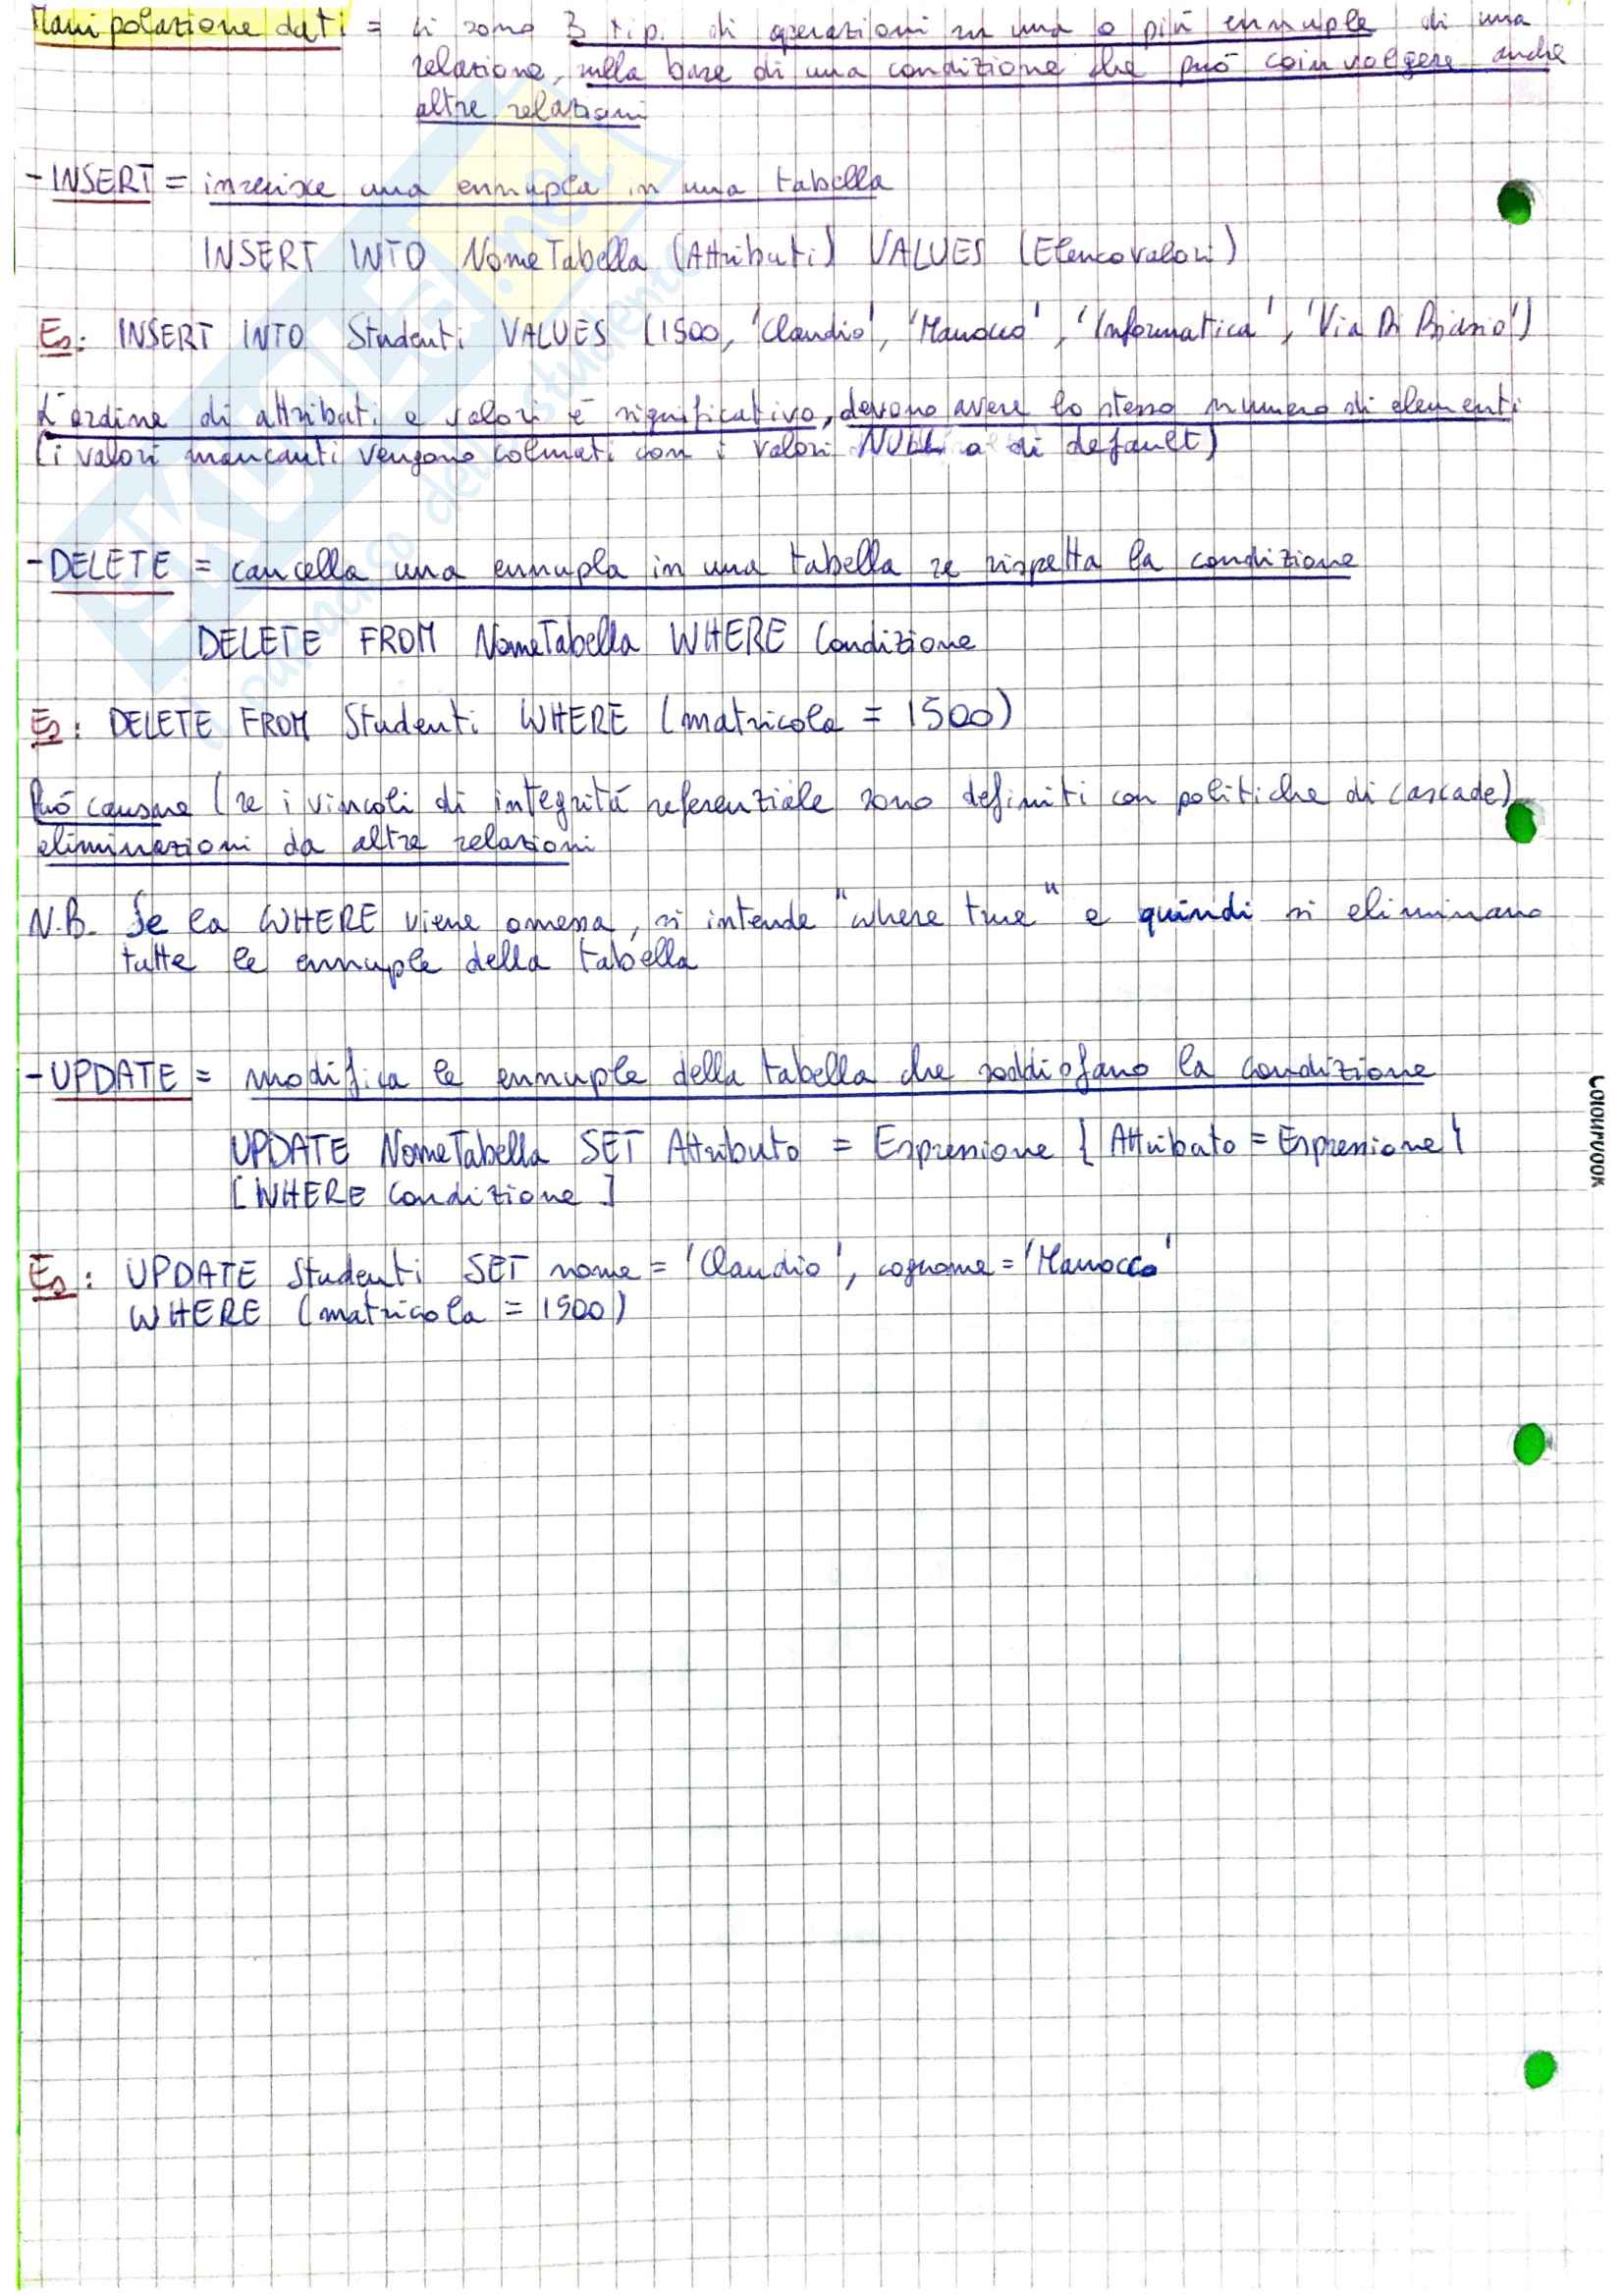 Manipolazione dati = ci sono 3 tipi di operazioni su una o più ennuple di una
relazione, sulla base di una condizione che può coinvolgere anche
altre relazioni
- INSERT = inserisce una ennupla in una tabella
INSERT INTO NomeTabella (Attributi) VALUES (ElencoValori)
Es: INSERT INTO Studenti VALUES (1500, 'Claudio', 'Manocco', 'Informatica', 'Via Di
L'ordine di attributi e valori è significativo, devono avere lo stesso numero di elementi
(i valori mancanti vengono colmati con i valori NULL o di default)
- DELETE = cancella una ennupla in una tabella se rispetta la condizione
DELETE FROM NomeTabella WHERE Condizione
Es: DELETE FROM Studenti WHERE (matricola = 1500)
Può causare (se i vincoli di integrità referenziale sono definiti con politiche di cascade)
eliminazioni da altre relazioni
N.B. Se la WHERE viene omessa, si intende "where true" e quindi si eliminano
tutte le ennuple della tabella
- UPDATE = modifica le ennuple della tabella che soddisfano la condizione
UPDATE NomeTabella SET Attributo = Espressione { Attributo = Espressione }
[WHERE Condizione]
Es: UPDATE Studenti SET nome = 'Claudio', cognome = 'Manocco'
WHERE (matricola = 1500)
COLOURBOOK